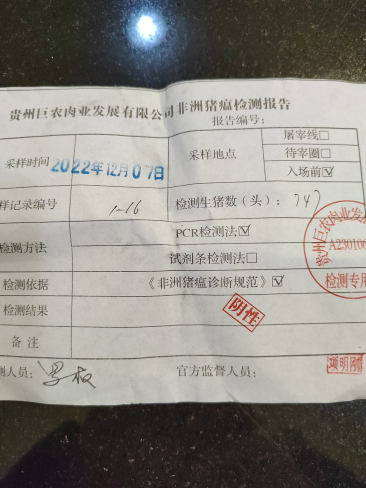 贵州巨农肉业发展有限公司非洲猪瘟检测报告
报告编号:
采样时间 2022年12月07日 采样地点 屠宰线□
待宰圈□
入场前☑
样记录编号 1-16 检测生猪数(头):
检测方法 PCR检测法☑
试剂条检测法□
检测依据 《非洲猪瘟诊断规范》☑
检测结果 阴性
备注
测人员: 官方监督人员:
贵州巨农肉业发
A230106
检测专用